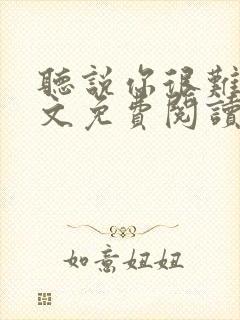 聽說你很難
文免費閱讀
如意妞妞